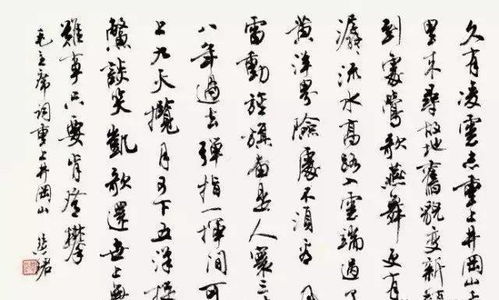 久有凌雲志重上井岡山
里来尋故地舊貌變新
到處鶯歌燕舞更有
潺流水高路入雲端過
黄洋界險處不須看
雷動旌旗奮是人寰三
八年過去彈指一揮間可
上九天攬月可下五洋捉
鱉談笑凱歌還世上無
難事只要肯登攀
毛主席詞重上井岡山